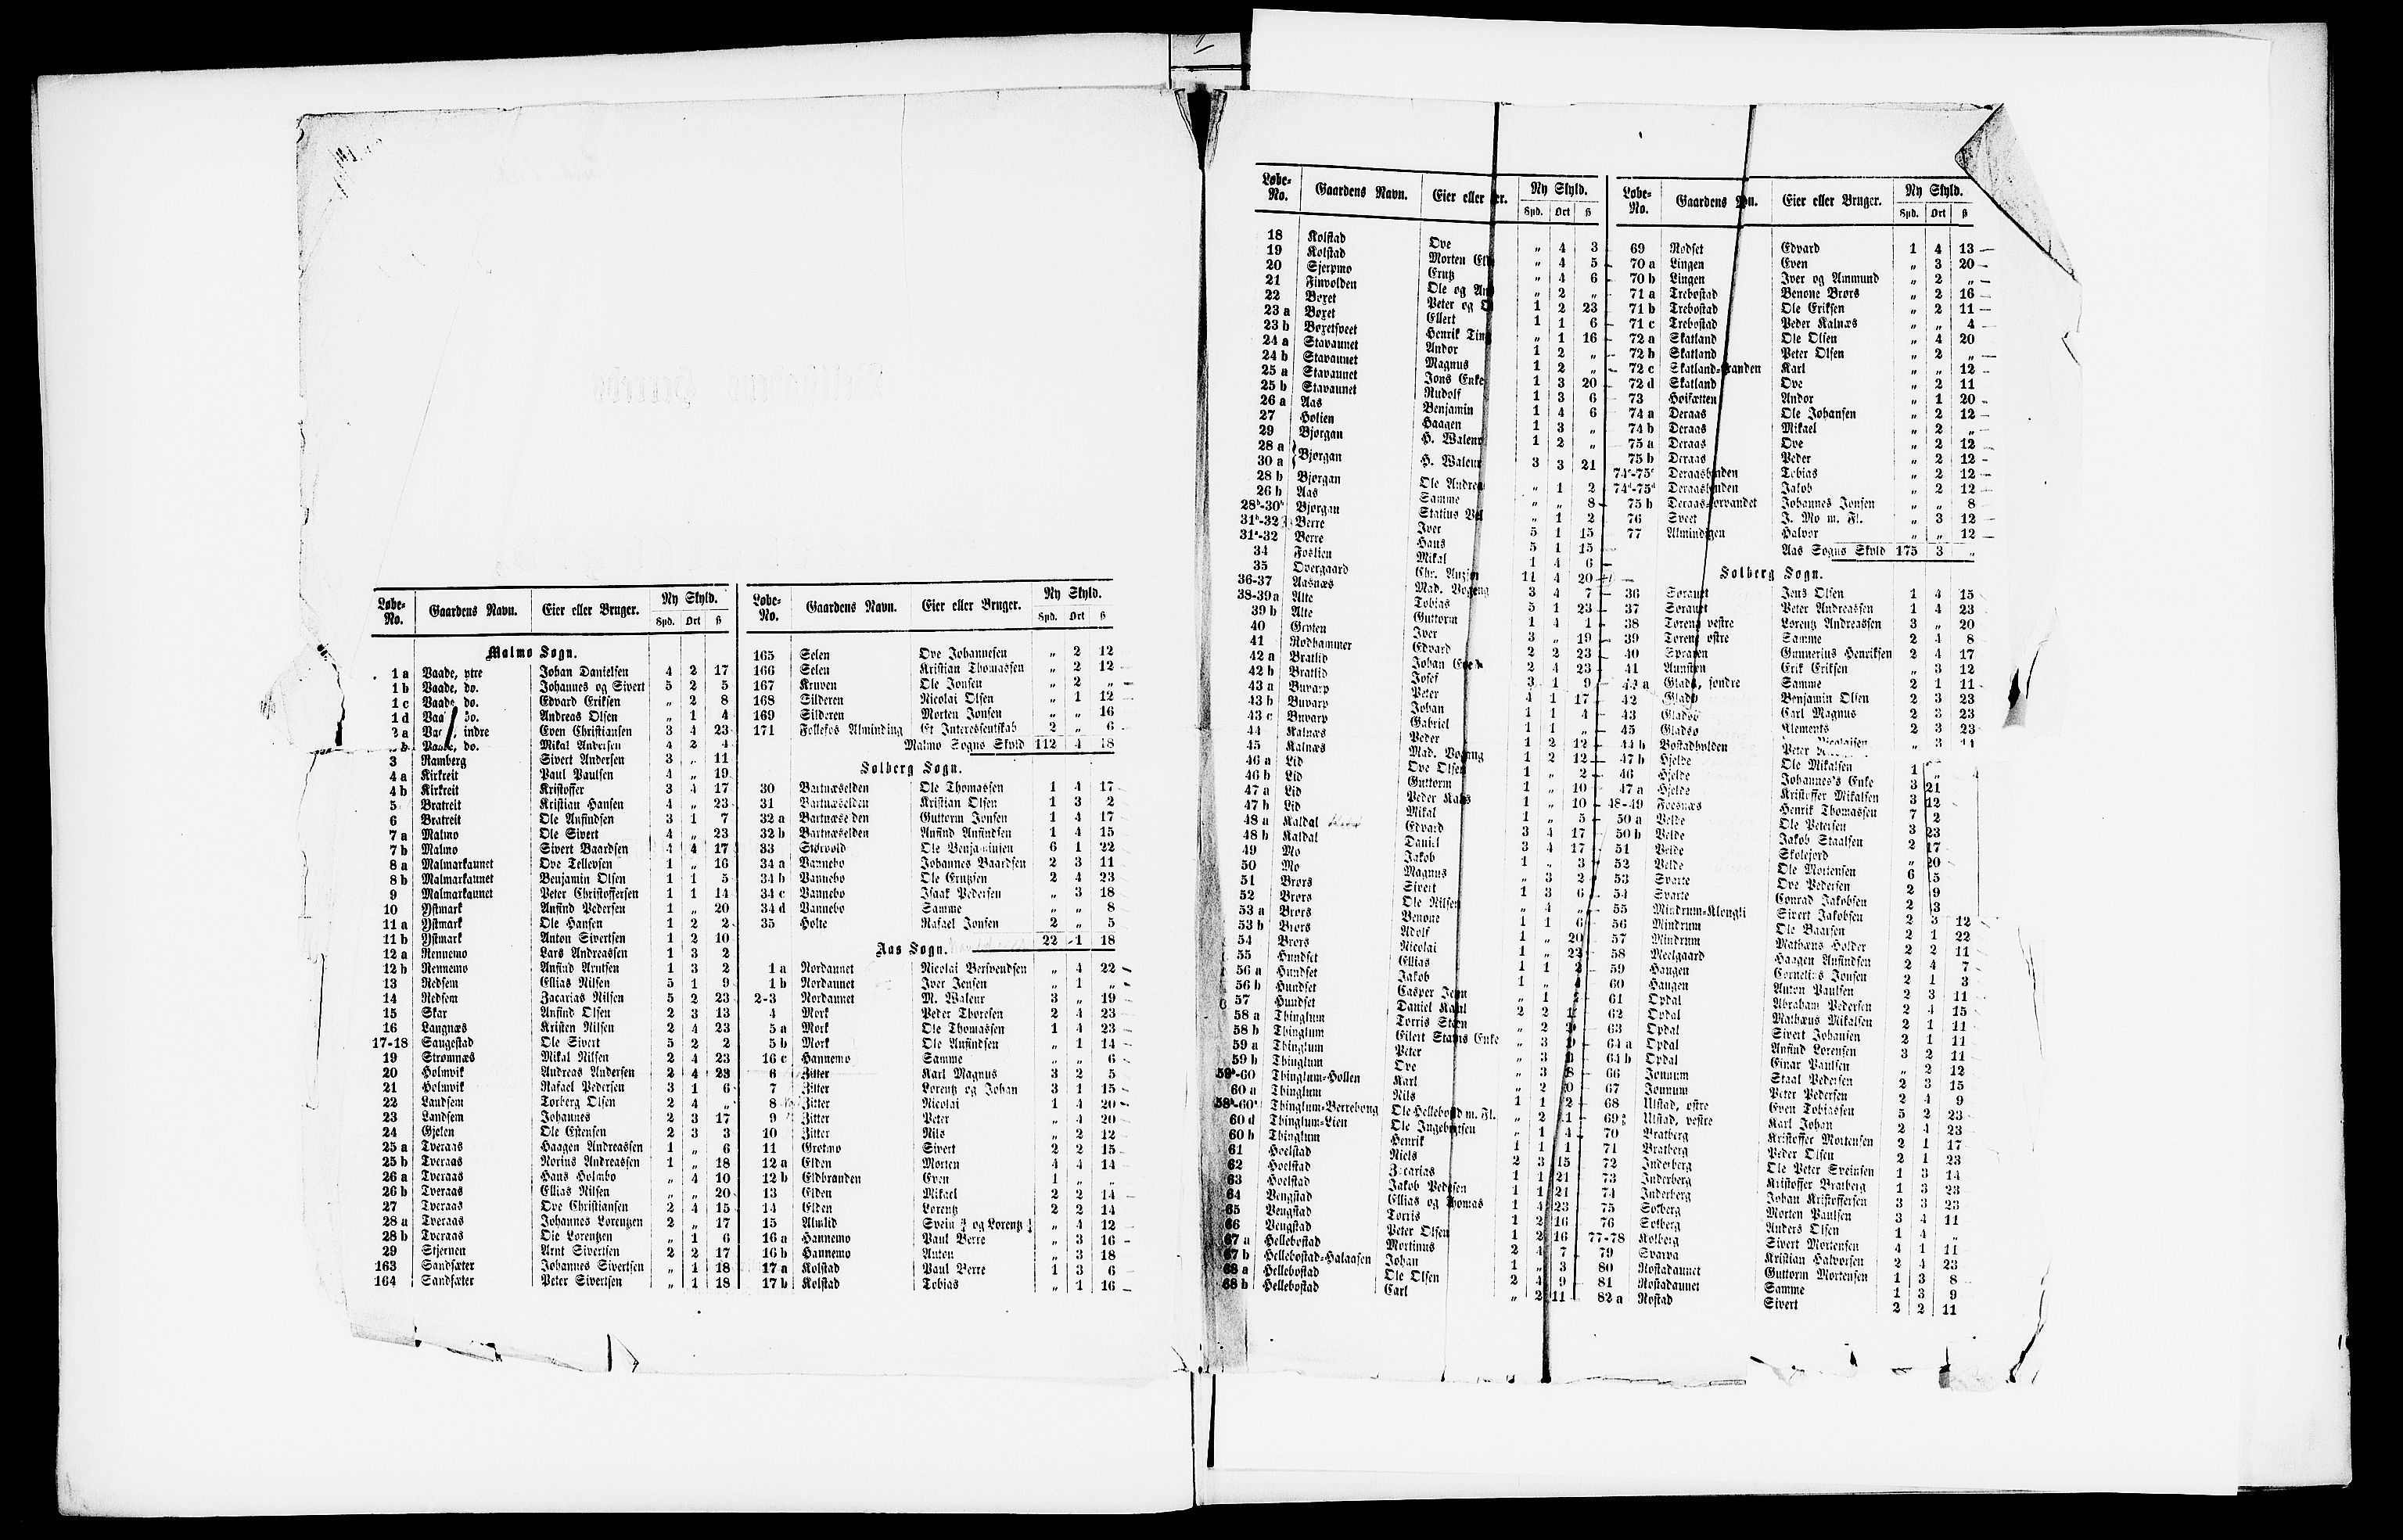 Løbe-No. Gaardens Navn. Eier eller Bruger. Ny Skyld. Spd. Ort ß
Malmo Sogn.
1 a Vaade, ytre Johan Danielsen 4 2 17
1 b Vaade, do. Johannes og Sivert 5 2 5
1 c Vaade, do. Edvard Eriksen „ 2 8
1 d do. Andreas Olsen „ 1 4
2 a indre Even Christiansen 3 4 23
b Vaade, do. Mikal Andersen 4 2 4
3 Ramberg Sivert Andersen 3 „ 11
4 a Kirkreit Paul Paulsen 4 „ 19
4 b Kirkreit Kristoffer 3 4 17
5 Bratreit Kristian Hansen 4 „ 23
6 Bratreit Ole Anfindsen 3 1 7
7 a Malmo Ole Sivert 4 „ 23
7 b Malmo Sivert Baardsen 4 4 17
8 a Malmarkaunet Ove Tellevsen 1 „ 16
8 b Malmarkaunet Benjamin Olsen 1 1 5
9 Malmarkaunet Peter Christoffersen 1 1 14
10 Østmark Anfind Pedersen 1 „ 20
11 a Østmark Ole Hansen 1 2 2
11 b Østmark Anton Sivertsen 1 2 10
12 a Rennemo Lars Andreassen 1 3 2
12 b Rennemo Anfind Arntsen 1 3 2
13 Redsem Ellias Nilsen 5 1 9
14 Redsem Zacarias Nilsen 5 2 23
15 Skar Anfind Olsen 2 3 13
16 Langnæs Kristen Nilsen 2 4 23
17-18 Saugestad Ole Sivert 5 2 2
19 Strømnæs Mikal Nilsen 2 4 23
20 Holmvik Andreas Andersen 2 4 23
21 Holmvik Rafael Pedersen 3 1 6
22 Landsem Torberg Olsen 2 4 „
23 Landsem Johannes 2 3 17
24 Gjelen Ole Estensen 2 3 3
25 a Tveraas Haagen Andreassen 1 „ 6
25 b Tveraas Norius Andreassen 1 „ 18
26 a Tveraas Hans Holmbo „ 4 10
26 b Tveraas Ellias Nilsen „ „ 20
27 Tveraas Ove Christiansen 2 4 15
28 a Tveraas Johannes Lorentzen 2 „ 17
28 b Tveraas Ole Lorentzen „ 1 6
29 Stjernen Arnt Sivertsen 2 2 17
163 Sandsæter Johannes Sivertsen „ 1 18
164 Sandsæter Peter Sivertsen „ 1 18
Løbe-No. Gaardens Navn. Eier eller Bruger. Ny Skyld. Spd. Ort ß
165 Selen Ove Johannesen „ 2 12
166 Selen Kristian Thomassen „ 2 12
167 Kruven Ole Jonsen „ 2 „
168 Silderen Nicolai Olsen „ 1 12
169 Silderen Morten Jonsen „ „ 16
171 Follefos Alminding Et Interessentskab 2 „ 6
Malmo Sogns Skyld 112 4 18
Solberg Sogn.
30 Bartnæselden Ole Thomassen 1 4 17
31 Bartnæselden Kristian Olsen 1 3 2
32 a Bartnæselden Guttorm Jonsen 1 4 17
32 b Bartnæselden Anfind Anfindsen 1 4 15
33 Størvold Ole Benjaminsen 6 1 22
34 a Vannebo Johannes Baardsen 2 3 11
34 b Vannebo Ole Erntzsen 2 4 23
34 c Vannebo Isaak Pedersen „ 3 18
34 d Vannebo Samme „ „ 8
35 Holte Rafael Jonsen 2 „ 5
22 1 18
Aas Sogn.
1 a Nordaunet Nicolai Berfvendsen „ 4 22
1 b Nordaunet Iver Jensen „ 1 „
2-3 Nordaunet M. Waleur 3 „ 19
4 Mork Peder Thoresen 2 4 23
5 a Mork Ole Thomassen 1 4 23
5 b Mork Ole Anfindsen „ 1 14
16 c Hannemo Samme „ „ 6
6 Zitter Karl Magnus 3 2 5
7 Zitter Lorentz og Johan 3 1 15
8 Zitter Nicolai 1 4 20
9 Zitter Peter „ 4 20
10 Zitter Nils „ 2 12
11 Gretmo Sivert 2 2 15
12 a Elden Morten 4 4 14
12 b Eldbranden Even 1 „ „
13 Elden Mikael 2 2 14
14 Elden Lorentz 2 2 14
15 Almlid Svein og Lorentz „ 4 12
16 a Hannemo Paul Berre „ 3 16
16 b Hannemo Anton „ 3 18
17 a Kolstad Paul Berre 1 3 6
17 b Kolstad Tobias „ 1 16
Løbe-No. Gaardens Navn. Eier eller Ny Skyld. Spd. Ort ß
18 Kolstad Ove „ 4 3
19 Kolstad Morten „ 4 5
20 Sjerpmo Erntz „ 4 6
21 Finvolden Ole og „ 2 „
22 Boret Peter og 1 2 23
23 a Boret Ellert 1 1 6
23 b Boretsveet Henrik „ 1 16
24 a Stavaunet Andor 1 2 „
24 b Stavaunet Magnus 1 2 „
25 a Stavaunet Jons Enke 1 3 20
25 b Stavaunet Rudolf 1 3 6
26 a Aas Benjamin 1 4 6
27 Holien Haagen 1 3 „
29 Bjørgan H. Waleur 1 2 „
28 a 30 a Bjørgan H. Waleur 3 3 21
28 b Bjørgan Ole Andrea „ 1 2
26 b Aas Samme „ „ 8
28ᵇ-30ᵇ Bjørgan Statius „ 1 2
31ᵇ-32 Berre Iver 5 1 15
31ᵃ-32 Berre Hans 5 1 15
34 Foslien Mikal 1 4 6
35 Overgaard Chr. 11 4 20
36-37 Aasnæs Mad. 3 4 7
38-39a Alte Tobias 5 1 23
39 b Alte Guttorm 1 4 1
40 Groten Iver 3 „ 19
41 Rodhammer Edvard 2 2 23
42 a Bratlid Johan 2 4 23
42 b Bratlid Josef 3 1 9
43 a Buvarp Peter 4 1 17
43 b Buvarp Johan 1 1 4
43 c Buvarp Gabriel 1 1 „
44 Kalnæs Peder 1 2 12
45 Kalnæs Mad. 1 2 12
46 a Lid Ove Olsen 1 „ 2
46 b Lid Guttorm 1 „ 10
47 a Lid Peder 1 „ 10
47 b Lid Mikal 1 „ 5
48 a Kaldal Edvard 3 4 17
48 b Kaldal Daniel 3 4 17
49 Mo Jakob 1 „ 3
50 Mo Magnus „ 3 2
51 Brørs Sivert 1 3 6
52 Brørs Ole Nilsen „ 4 „
53 a Brørs Benone 1 1 6
53 b Brørs Adolf 1 „ 20
54 Brørs Nicolai 1 „ 22
55 Hundset Ellias 1 1 2
56 a Hundset Jakob 1 „
56 b Hundset Casper „ 1
57 Hundset Daniel 2 2
58 a Thinglum Torris „ 2
58 b Thinglum Eilert Enke „ 3
59 a Thinglum Peter „ 3
59 b Thinglum Ove „ 3
59ᵇ-60 Thinglum-Hollen Karl „ 2
60 a Thinglum Nils 1 1 2
Thinglum-Berrebong Ole Hellebostad m. Fl. „ 2
60 d Thinglum-Lien Ole Ingebrigtsen „ 1 4
60 b Thinglum Henrik 1 1 1
61 Hoelstad Niels 2 3 15
62 Hoelstad Zacarias 1 1 21
63 Hoelstad Jakob Pedersen 1 1 21
64 Vengstad Ellias og Thomas 1 4 23
65 Vengstad Torris 1 2 16
66 Vengstad Peter Olsen 1 2 16
67 a Hellebostad Mortinus 2 4 7
67 b Hellebostad-Halaasen Johan 1 „ 3
68 a Hellebostad Ole Olsen 2 4 9
68 b Hellebostad Carl „ 2 11
Løbe-No. Gaardens Eier eller Bruger. Ny Skyld. Spd. Ort ß
69 Rødset Edvard 1 4 13
70 a Lingen Even „ 3 20
70 b Lingen Iver og Ammund „ 2 „
71 a Trebostad Benone Brørs „ 2 16
71 b Trebostad Ole Eriksen „ 2 11
71 c Trebostad Peder Kalnæs „ „ 4
72 a Skatland Ole Olsen „ 4 20
72 b Skatland Peter Olsen „ 2 „
72 c Skatland- Karl „ „ 12
72 d Skatland Ove „ 2 11
73 Høisætten Andor „ 1 20
74 a Deraas Ole Johansen „ 2 12
74 b Deraas Mikael „ 2 „
75 a Deraas Ove „ 2 12
75 b Deraas Peder „ 2 12
74ᶜ-75ᶜ Tobias „ 2 12
74ᵈ-75ᵈ Jakob „ 2 12
75 b Johannes Jonsen „ „ 8
76 Sveet J. Mo m. Fl. „ 3 12
77 Almindigen Halvor „ „ 12
Aas Sogns Skyld 175 3 „
Solberg Sogn.
36 Soraunet Jens Olsen 1 4 15
37 Soraunet Peter Andreassen 1 4 23
38 Toreng vestre Lorentz Andreassen 3 „ 20
39 Toreng østre Samme 2 4 8
40 Sprauen Gunnerius Henriksen 2 4 17
41 Aunsten Erik Eriksen „ 3 12
42 a Gladsø, søndre Samme 2 1 11
42 Gladsø Benjamin Olsen 2 3 23
43 Gladsø Carl Magnus 2 3 23
45 Gladsø Klements 2 3 23
44 b Bostadhylden Peter „ 3
47 b Hjelde Ole Mikalsen 1
46 Hjelde Johannes's Enke 3
47 a Hjelde Kristoffer Mikalsen 3
48-49 Foosnæs Henrik Thomassen 7
50 a Velde Ole Petersen 3
50 b Velde Jakob Staalsen 2
51 Velde Skolejord „
52 Velde Ole Mortensen 6
53 Svarte Ove Pedersen 2
54 Svarte Conrad Jakobsen 2
55 Mindrum-Klongli Sivert Jakobsen 2 3 12
56 Mindrum Ole Baarsen 2 1 22
57 Mindrum Mathæus Holder 2 2 11
58 Meelgaard Haagen Anfindsen 2 4 7
59 Haugen Cornelius Jonsen 2 1 3
60 Haugen Anton Paulsen 2 3 11
61 Opdal Abraham Pedersen 2 4 15
62 Opdal Mathæus Mikalsen 2 1 11
63 Opdal Sivert Johansen 2 1 11
64 a Opdal Anfind Lorensen 3 2 11
64 b Opdal Einar Paulsen „ 2 12
66 Jonnum Staal Pedersen 2 3 15
67 Jonnum Peter Pedersen 2 4 9
68 Ulstad, østre Even Tobiassen 5 2 23
69 Ulstad, vestre Karl Johan 2 4 23
70 Bratberg Kristoffer Mortensen 2 1 17
71 Bratberg Peder Olsen 2 1 23
72 Inderberg Ole Peter Sveinsen 1 3 14
73 Inderberg Kristoffer Bratberg 1 3 23
74 Inderberg Johan Kristoffersen 3 3 23
75 Solberg Morten Paulsen 3 4 11
76 Solberg Anders Olsen 1 4 „
77-78 Kolberg Sivert Mortensen 4 1 11
79 Svarva Kristian Halvorsen 2 4 23
80 Rostadaunet Guttorm Mortensen 1 3 8
81 Rostadaunet Samme 1 3 9
82 a Rostad Sivert 2 2 11